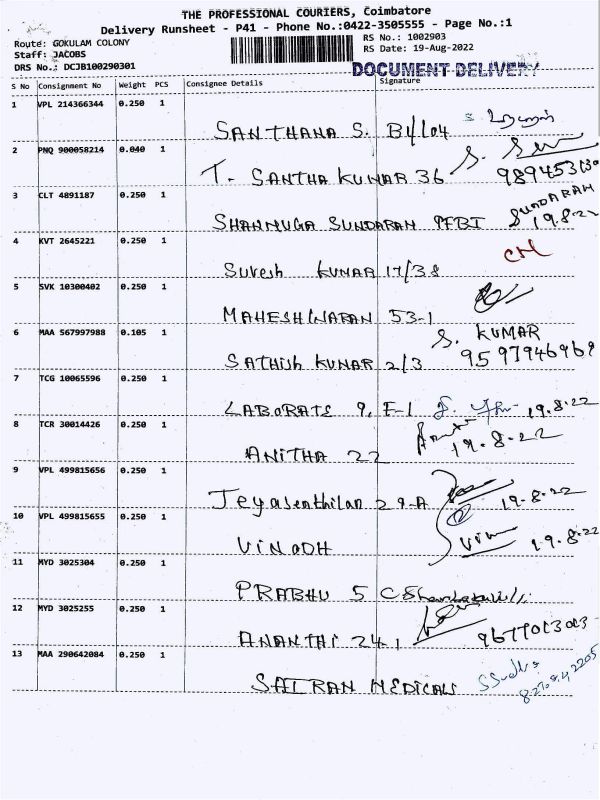 THE PROFESSIONAL COURIERS, Coimbatore
Delivery Runsheet - P41 - Phone No.:0422-3505555 - Page No.:1
Route: GOKULAM COLONY
RS No.: 1002903
Staff: JACOBS
RS Date: 19-Aug-2022
DRS No.: DCJB100290301
DOCUMENT DELIVERY
S No Consignment No Weight PCS Consignee Details Signature
1 VPL 214366344 0.250 1
SANTHANA S. B4/104
2 PNQ 900058214 0.040 1
T. SANTHA KUMAR 36
3 CLT 4891187 0.250 1
SUNDARAM
SHANMUGA SUNDARAM 19.8.22
4 KVT 2645221 0.250 1
Suresh KUMAR 17/38
5 SVK 10300402 0.250 1
MAHESHWARAN 53-1
6 MAA 567997988 0.105 1
S. KUMAR
SATHISH KUMAR 2/3 9597946969
7 TCG 10065596 0.250 1
LABORATE 9, E-1 19.8.22
8 TCR 30014426 0.250 1
19.8.22
ANITHA 22
9 VPL 499815656 0.250 1
Jeyasenthilan 29-A 19-8-22
10 VPL 499815655 0.250 1
VINODH 19.8.22
11 MYD 3025304 0.250 1
PRABHU 5 C
12 MYD 3025255 0.250 1
ANANTHI 24-1 9677013013
13 MAA 290642084 0.250 1
SAIRAM MEDICALS